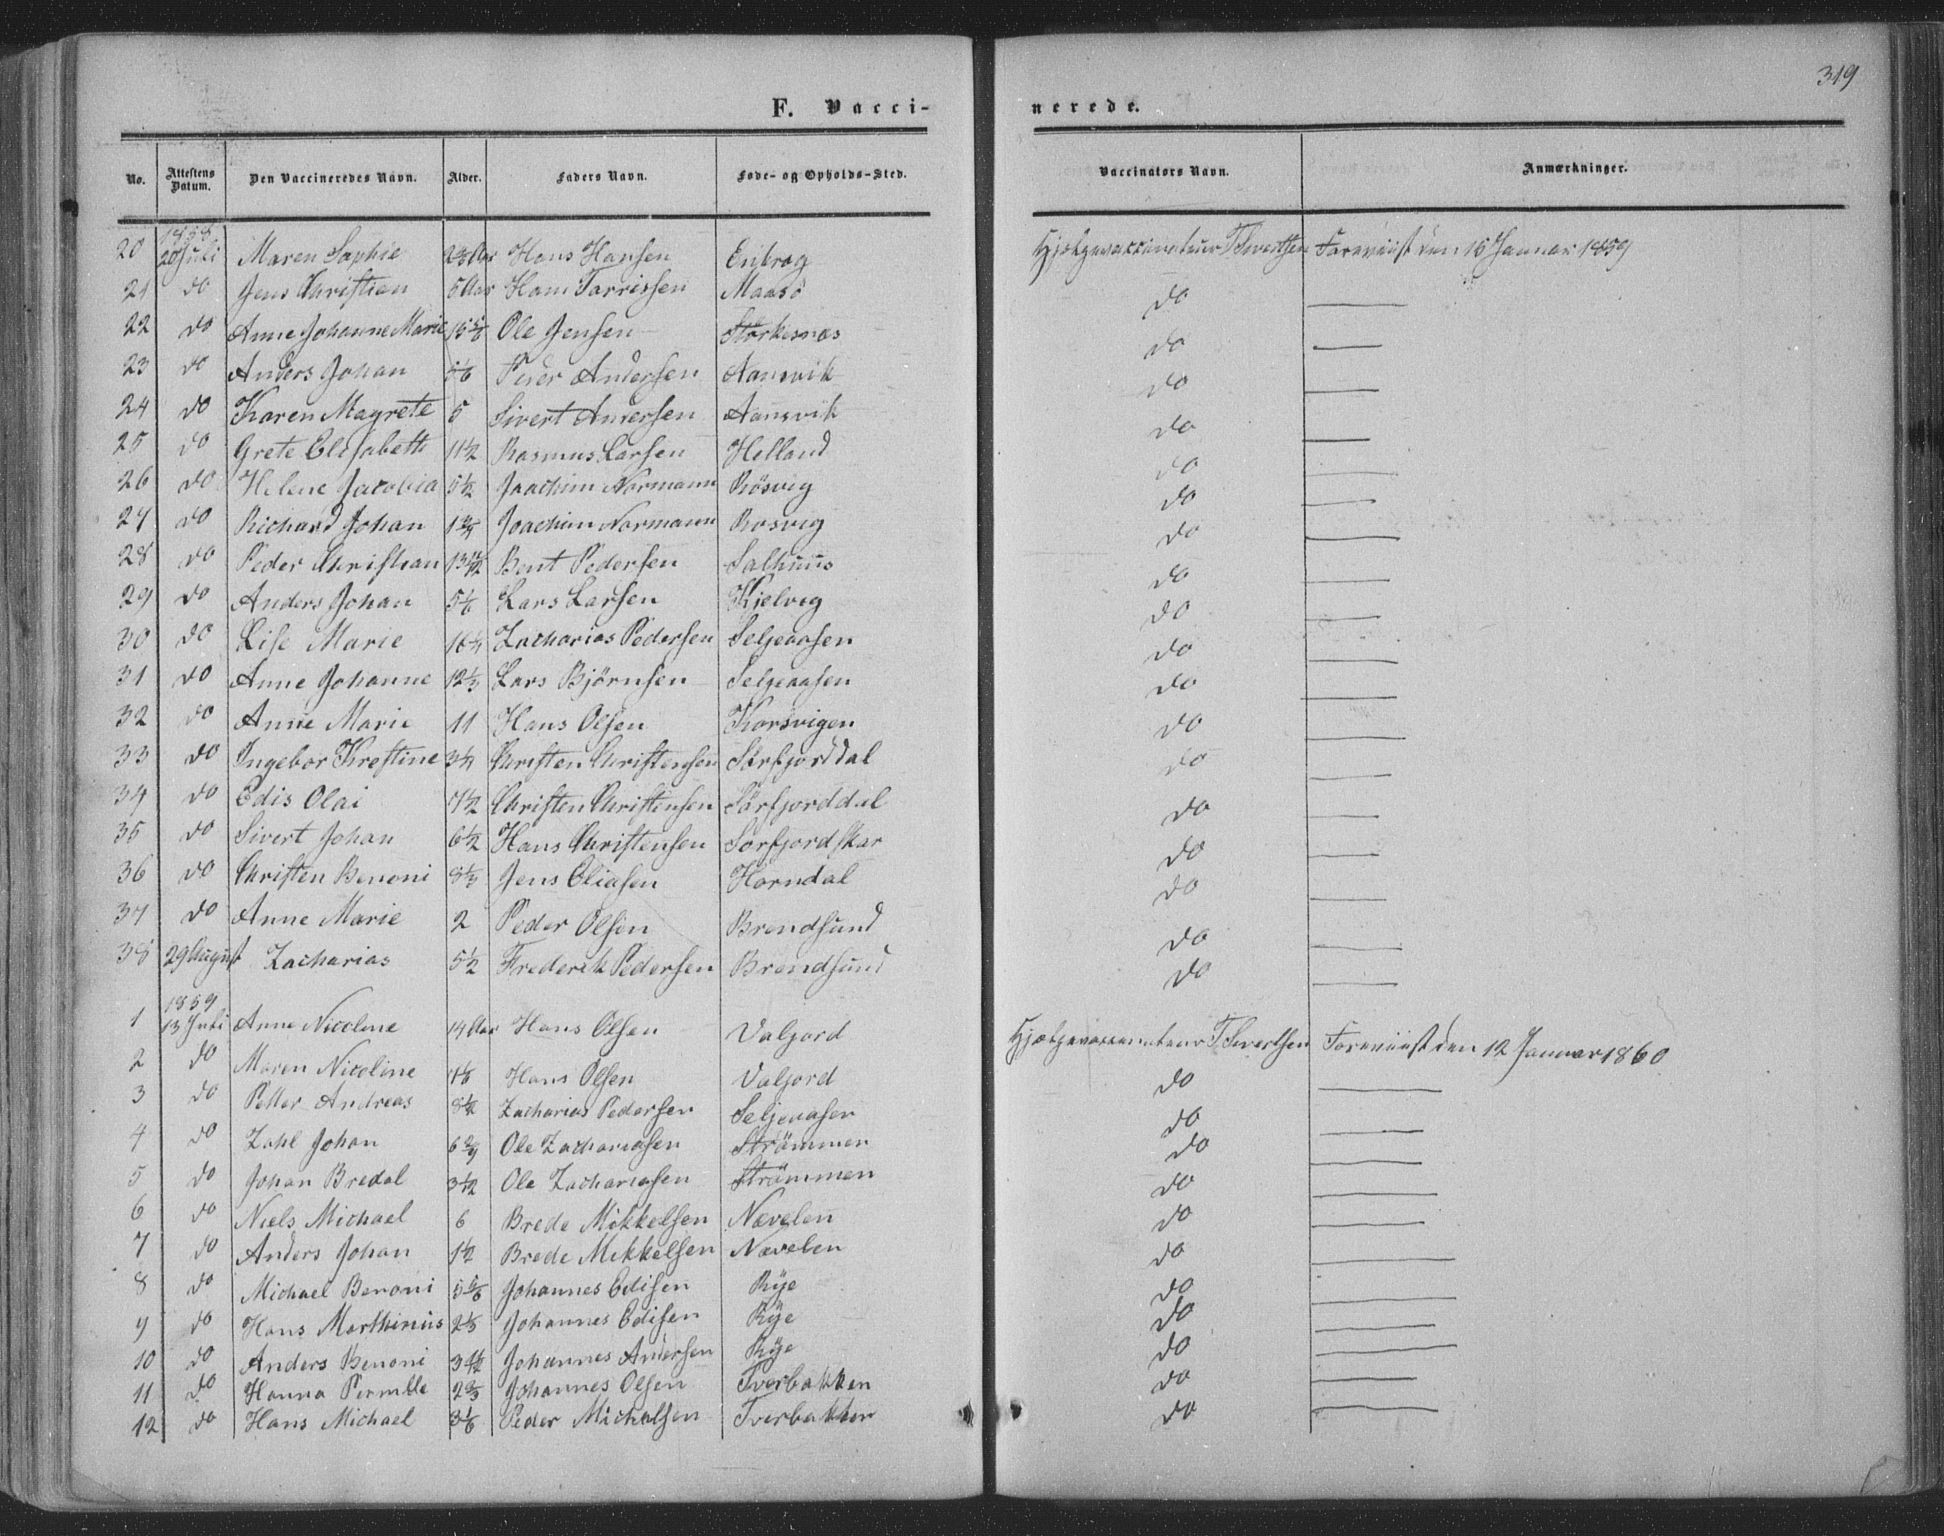 319
F. Vacci-nerede.
No. Attestens Datum. Den Vaccineredes Navn. Alder. Faders Navn. Føde- og Opholds-Sted. Vaccinators Navn. Anmærkninger.
1858
20 20 Juli Maren Sophie Hans Hansen Hjælpevaccinateur T Sivertsen Foreviist den 16 Januar 1859
21 do Jens Christian 5 Aar Hans Maasö do
22 do Anne Johanne Marie Ole Jensen Störkesnæs do
23 do Anders Johan Peder Andersen Aansvik do
24 do Karen Magrete 5 Sivert Andersen Aansvik do
25 do Grete Elisabeth 11 1/2 Rasmus Larsen Helland do
26 do Helene Jacobia 5 1/2 Joachim Normann Rösvig do
27 do Richard Johan Joachim Normann Rosvig do
28 do Peder Christian Bent Pedersen Salhuus do
29 do Anders Johan Lars Larsen Kjelvig do
30 do Lise Marie Zacharias Pedersen Seljeaasen do
31 do Anne Johanne Lars Björnsen Seljeaasen do
32 do Anne Marie 11 Hans Olsen Korsvigen do
33 do Ingebor Krestine Christen Christensen Sörfjorddal do
34 do Edis Olai Christen Christensen Sörfjorddal do
35 do Sivert Johan 6 1/2 Hans Christensen Sörfjordskar do
36 do Christen Benoni Jens Eliasen Horndal do
37 do Anne Marie 2 Peder Olsen Brendsund do
38 29 August Zacharias 5 1/2 Frederik Pedersen Brendsund do
1859
1 13 Juli Anne Nicoline 14 Aar Hans Olsen Valjord Hjælpevaccinateur T Sivertsen Foreviist den 12 Januar 1860
2 do Maren Nicoline Hans Olsen Valjord do
3 do Petter Andreas Zacharias Pedersen Seljeaasen do
4 do Zahl Johan Ole Zachariasen Strömmen do
5 do Johan Bredal Ole Zachariasen Strömmen do
6 do Niels Michael 6 Brede Mikkelsen Nævelen do
7 do Anders Johan 1 1/2 Brede Mikkelsen Nævelen do
8 do Michael Benoni Johannes Edisen Rye do
9 do Hans Marthinus Johannes Edisen Rye do
10 do Anders Benoni Johannes Andersen Rye do
11 do Hanna Pernille 2 2/3 Johannes Olsen Tverbakken do
12 do Hans Michael 3 1/6 Peder Michelsen Tverbakken do